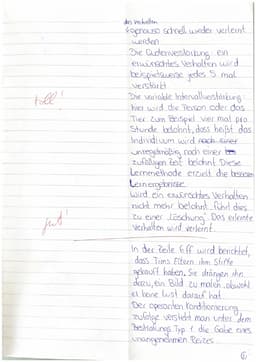 das Verhalten
genauso schnell wieder verlernt
werden
Die Quotenverstärkung, ein
erwünschtes Verhalten wird
beispielsweise jedes 5 mal
verstärkt
Die variable Intervallverstärkung
hier wird die Person oder das
toll!
Tier zum Beispiel vier mal pro
Stunde belohnt, dass heißt das
Individuum wird nach einer
unregelmäßig nach einer
zufälligen Zeit belohnt. Diese
Lernmethode erzielt die besten
Lernergebnisse.
Wird ein erwünschtes Verhalten
nicht mehr belohnt, führt dies
zu einer "Löschung". Das erlernte
gut!
Verhalten wird verlernt.
In der Zeile 6ff wird berichtet,
dass Tims Eltern ihm Stifte
gekauft haben. Sie drängen ihn
dazu, ein Bild zu malen, obwohl
er keine Lust darauf hat.
Der operanten Konditionierung
zufolge versteht man unter dem
Bestrafungs Typ 1 die Gabe eines
unangenehmen Reizes.